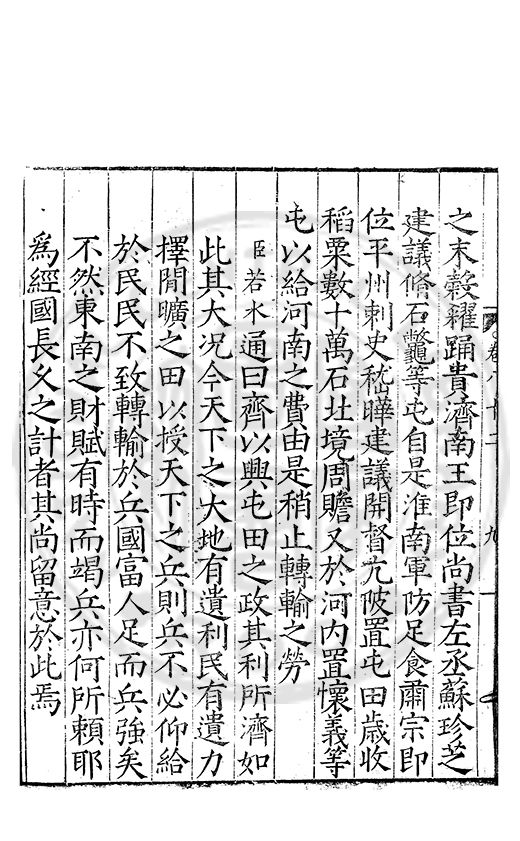 之末穀糴踊貴濟南王即位尚書左丞蘇珍芝
建議脩石鼈等屯自是淮南軍防足食肅宗即
位平州刺史嵇曄建議開督亢陂置屯田歲收
稻粟數十萬石北境周贍又於河内置懷義等
屯以給河南之費由是稍止轉輸之勞
臣若水通曰齊以興屯田之政其利所濟如
此其大况今天下之大地有遺利民有遺力
擇閒曠之田以授天下之兵則兵不必仰給
於民民不致轉輸於兵國富人足而兵強矣
不然東南之財賦有時而竭兵亦何所頼耶
為經國長久之計者其尚留意於此焉